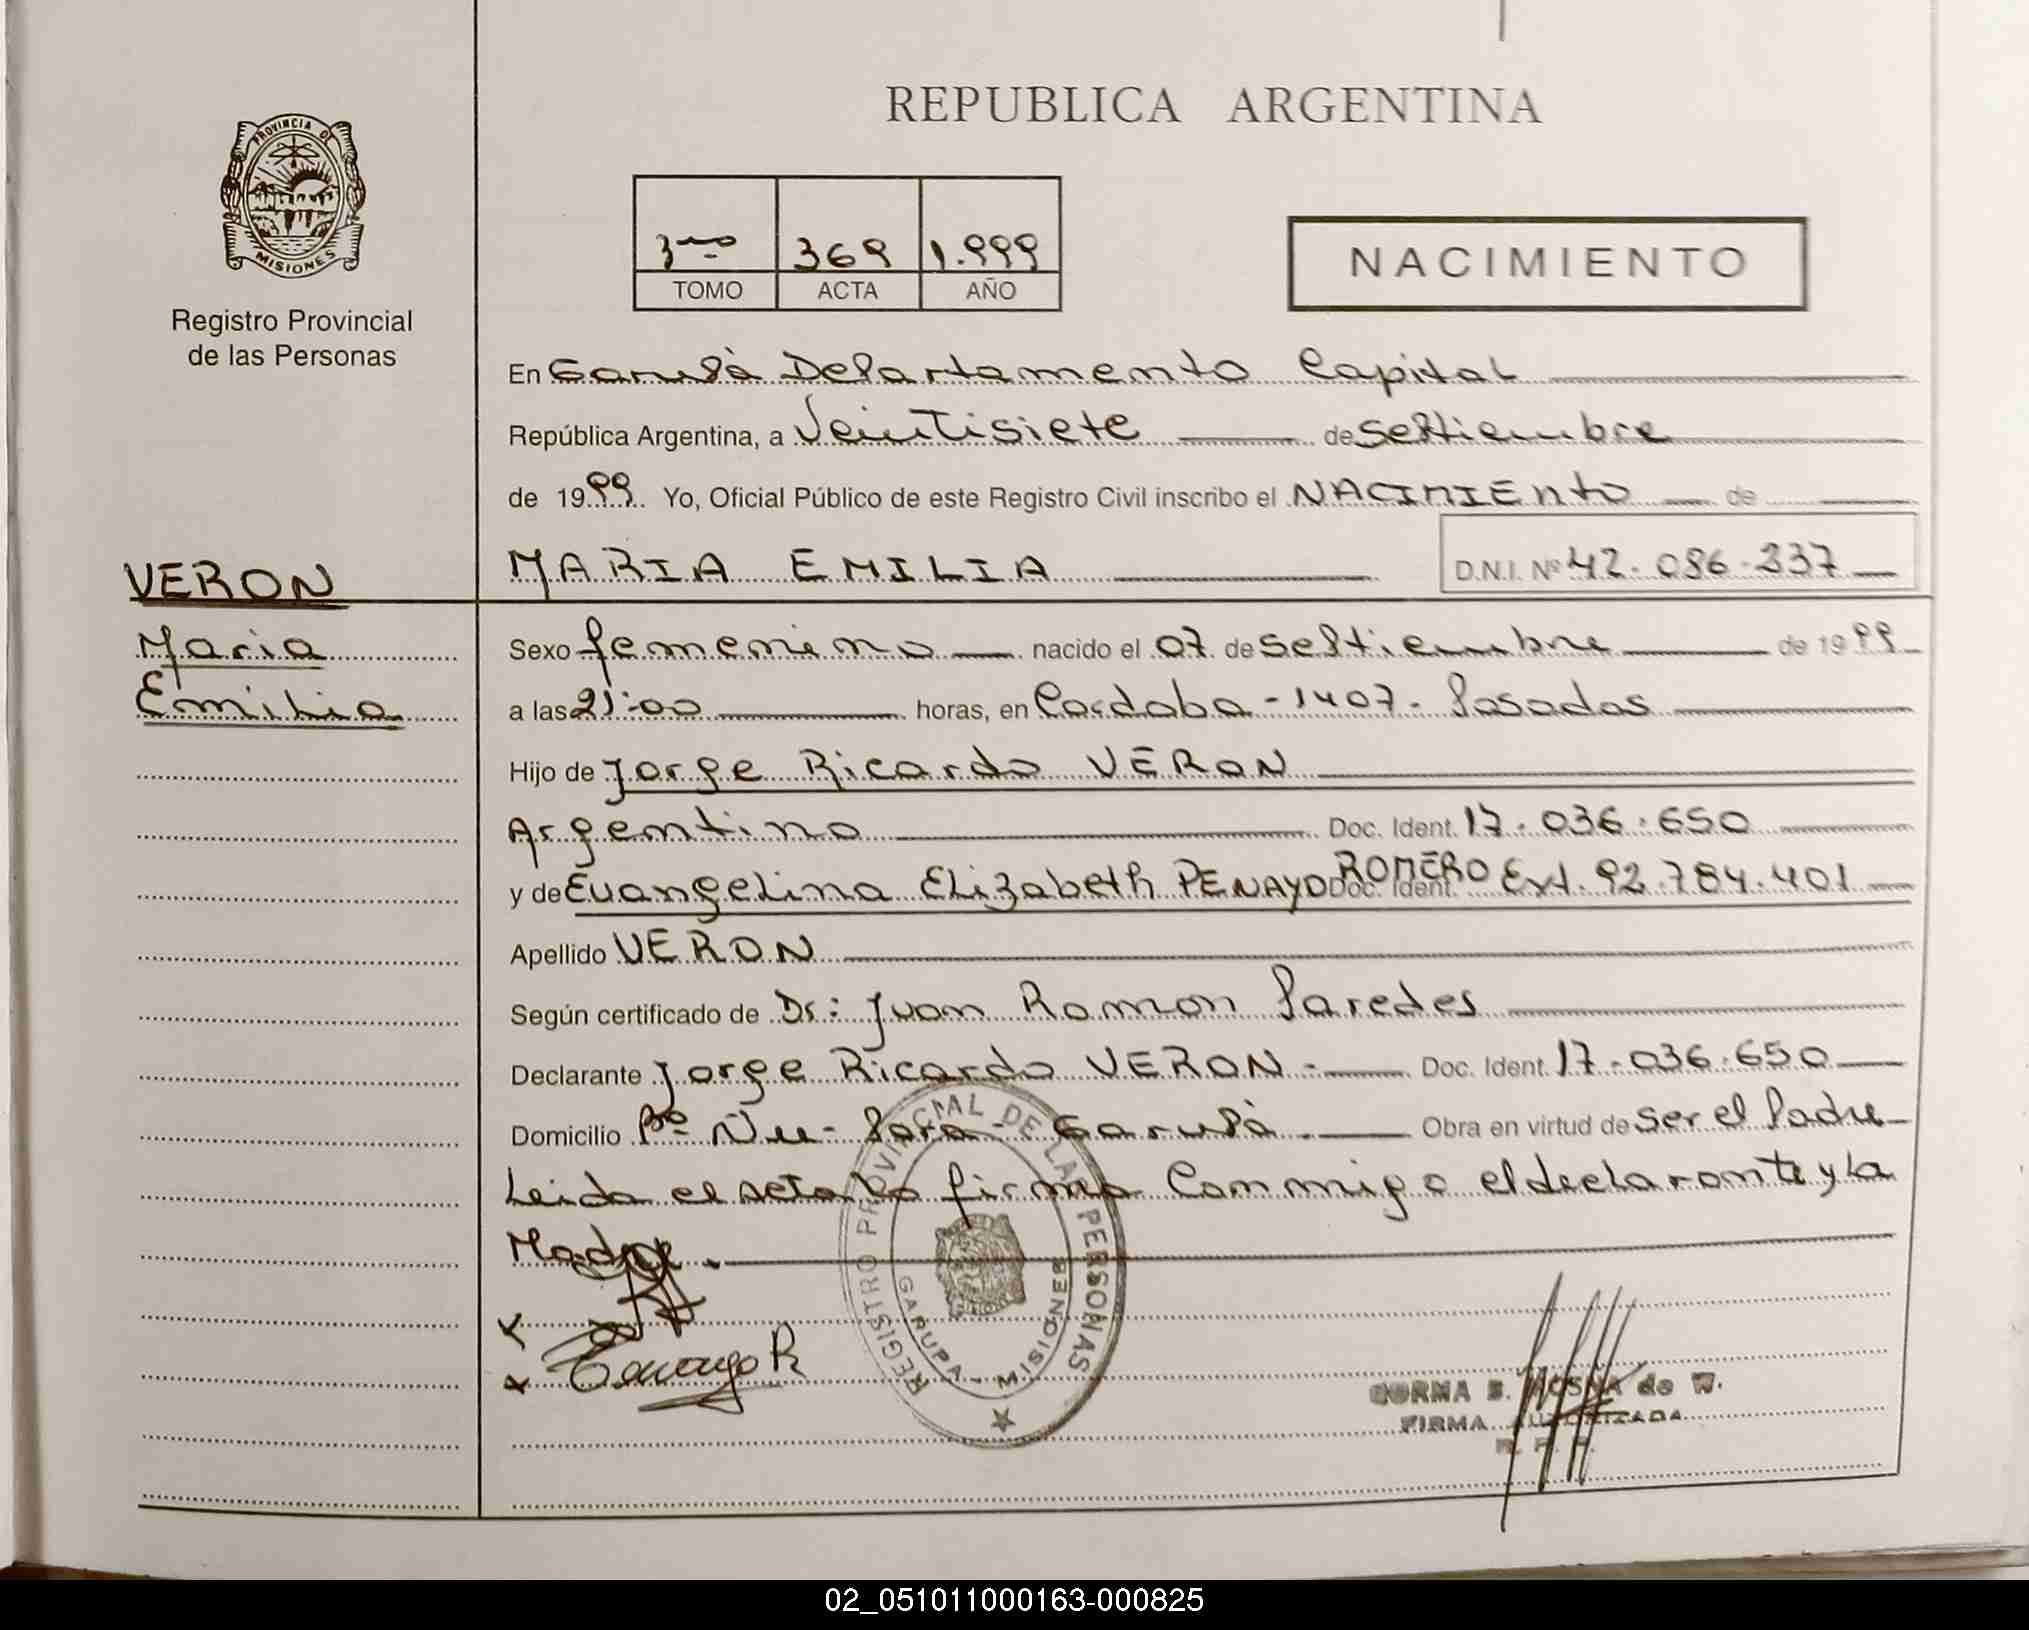 REPUBLICA ARGENTINA
PROVINCIA DE
MISIONES
Registro Provincial
de las Personas
3ro 369 1.999
TOMO ACTA AÑO
NACIMIENTO
En Garupá Departamento Capital
República Argentina, a Veintisiete de Septiembre
de 1999. Yo, Oficial Público de este Registro Civil inscribo el NACIMIENTO de
VERON
MARIA EMILIA
D.N.I. Nº 42.086.337
Maria
Emilia
Sexo femenino nacido el 07 de septiembre de 1999
a las 21:00 horas, en Cordoba - 1407 - Posadas
Hijo de Jorge Ricardo VERON
Argentino Doc. Ident. 17.036.650
y de Evangelina Elizabeth PENAYO ROMERO Doc. Ident. Ext. 92.784.401
Apellido VERON
Según certificado de Dr: Juan Ramon Paredes
Declarante Jorge Ricardo VERON - Doc. Ident. 17.036.650
Domicilio Bº Ñu - Porá - Garupá. Obra en virtud de ser el Padre
Leida el acta la firma Conmigo el declarante y la
Madre.
REGISTRO PROVINCIAL DE LAS PERSONAS
GARUPA - MISIONES
Penayo R
de W.
FIRMA AUTORIZADA
R. P. P.
02_051011000163-000825